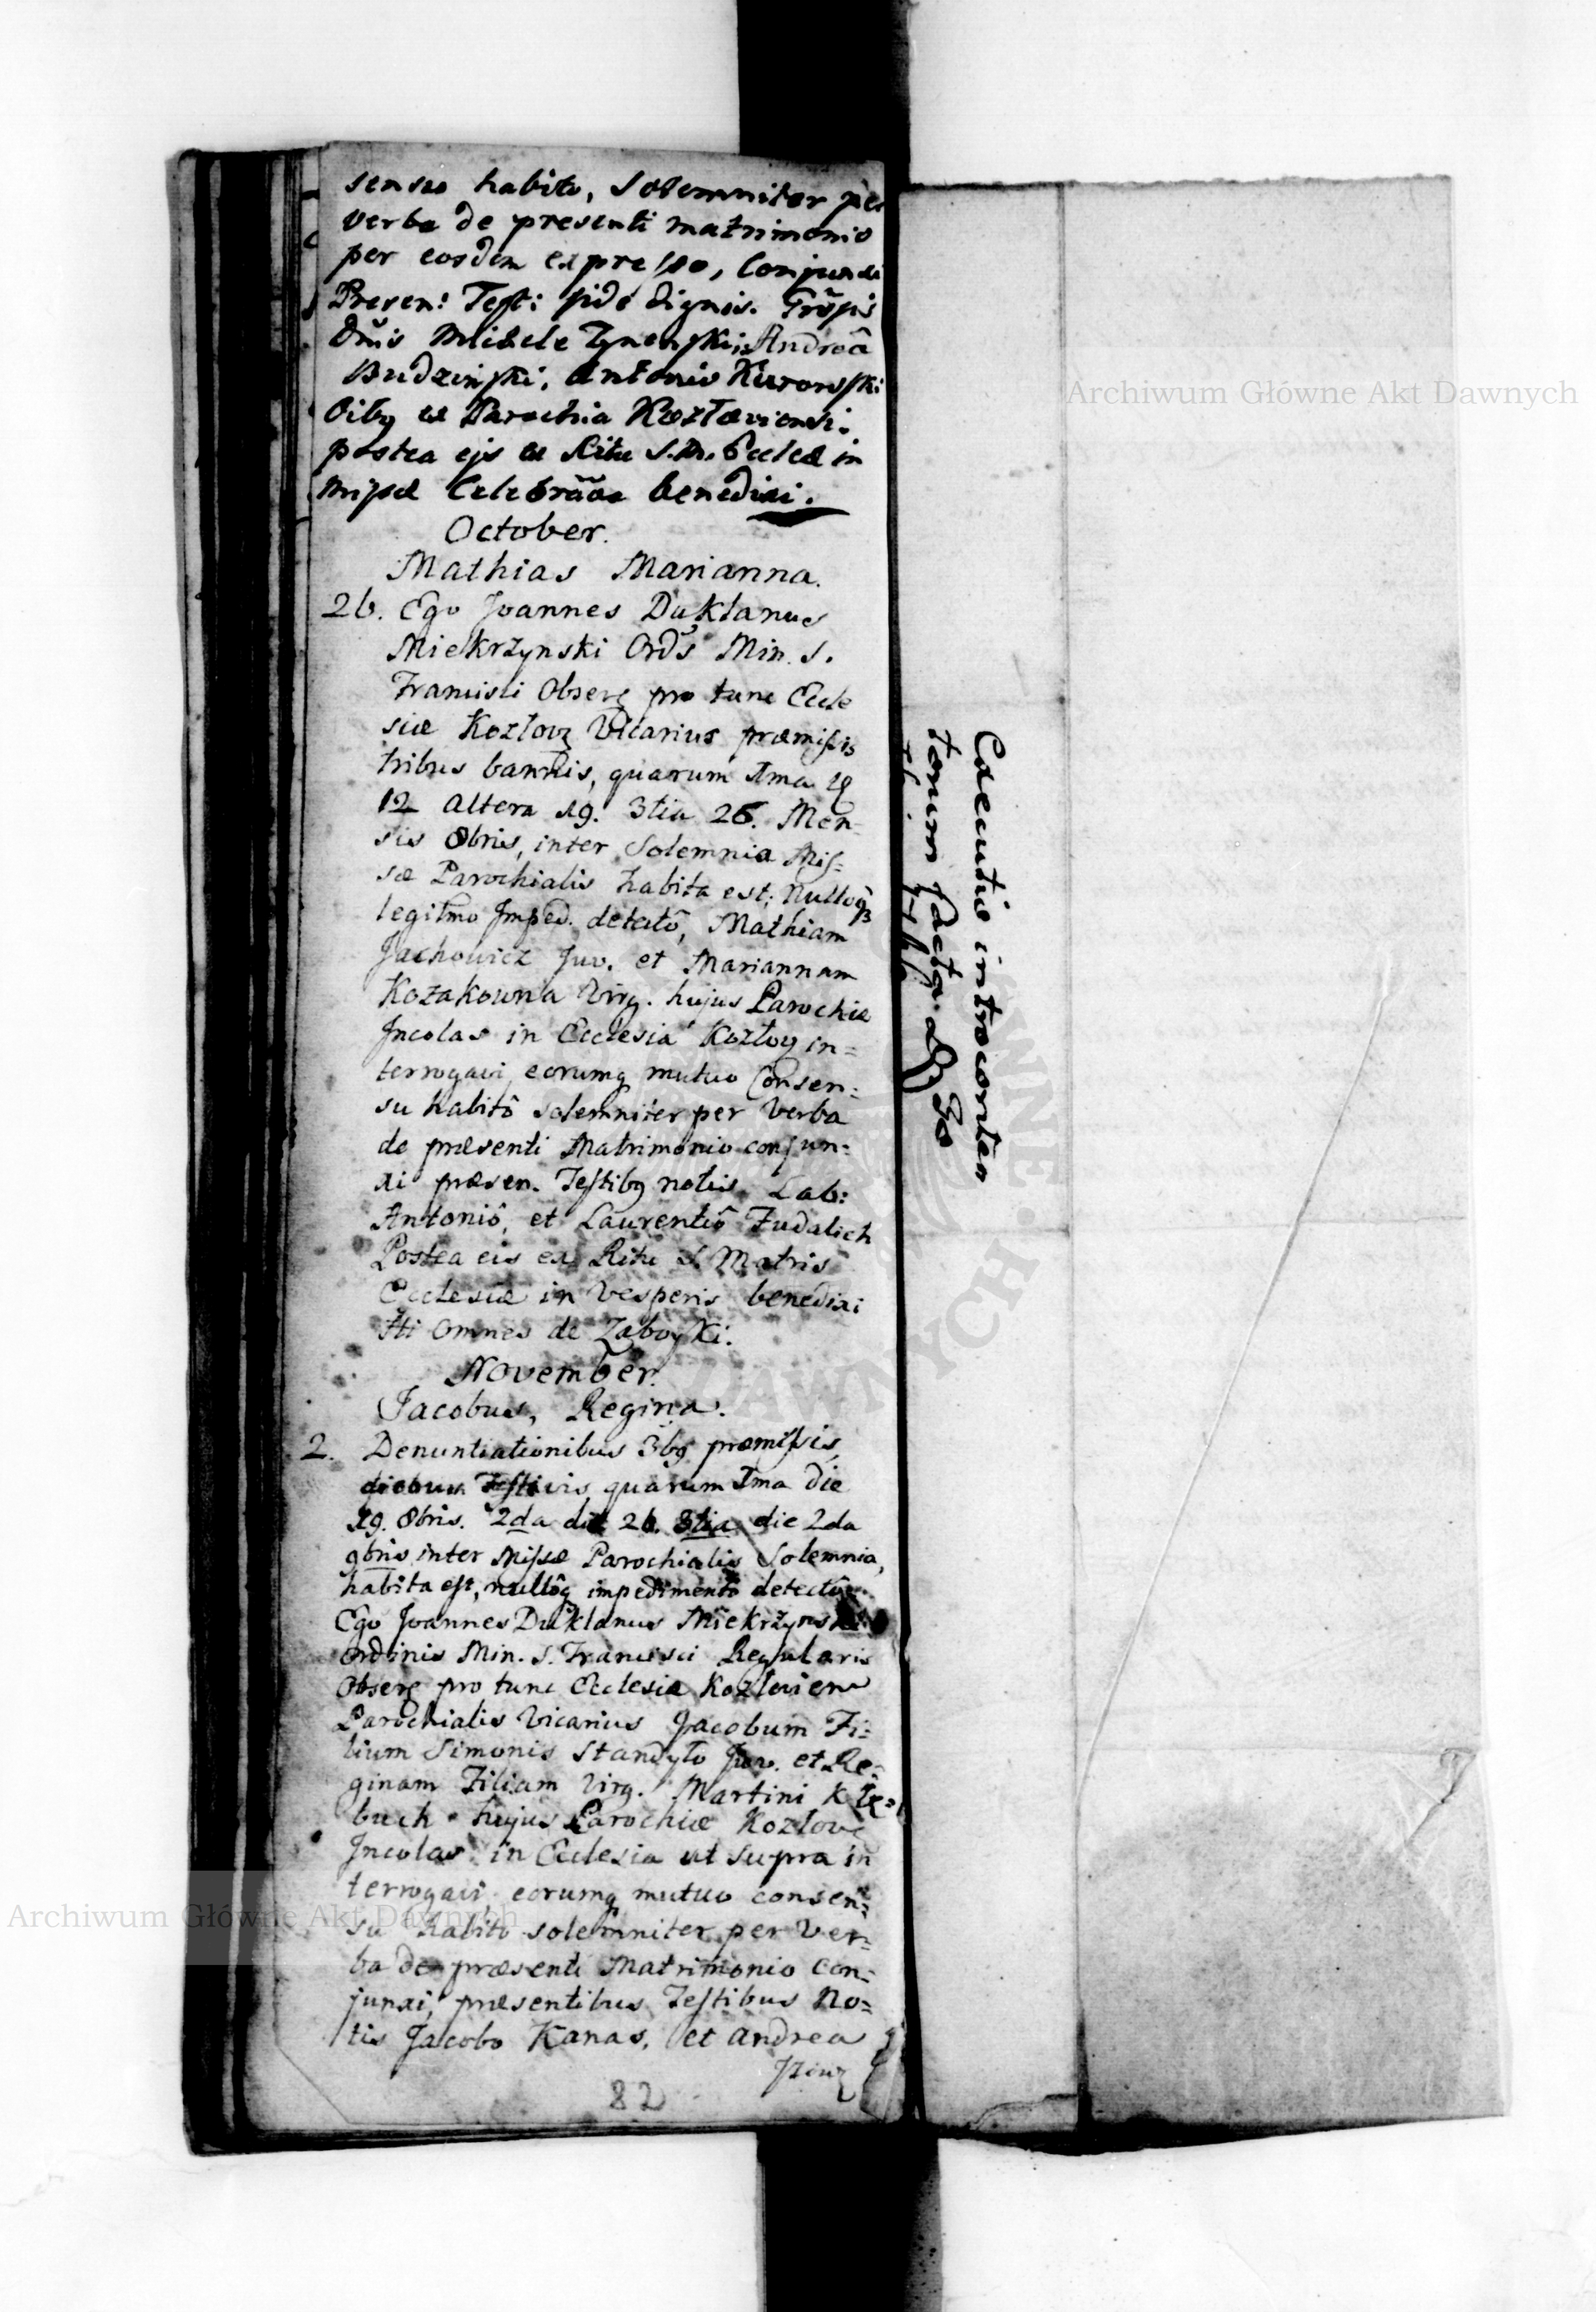 sensu habito, Solemniter per
verba de presenti matrimonio
per eosdem expresso, Conjunxi
Presen: Testi: fide dignis.
Dnis Michele Andreâ
Budzinski, Antonio Kurowski
oibq ex Parochia Kozloviensi.
postea ejs ex Ritu S. M. Eccleæ in
Missæ Celebraõe benedixi.
October.
Mathias Marianna.
26. Ego Joannes Duklanus
Miekrzynski Ords Min. S.
Francisci Observ pro tunc Eccle
siæ Kozlov Vicarius præmissis
tribus bannis, quarum Ima
12 altera 19. 3tia 26. Men=
sis 8bris, inter Solemnia Mis=
sæ Parochialis habita est; nulloq
legitmo Imped. detectô, Mathiam
Jachowicz Juv. et Mariannam
Kozakowna Virg. hujus Parochiæ
Incolas in Ecclesia Kozlov in=
terrogavi, eorumq mutuo Consen=
su habitô solemniter per Verba
de præsenti Matrimonio conjun=
xi præsen. Testibq notis Lab:
Antoniô, et Laurentiô Fudalich
Postea eis ex Ritu S. Matris
Ecclesiæ in Vesperis benedixi
Hi omnes de Zaboyki.
November.
Jacobus, Regina.
2. Denuntiationibus 3bq præmissis,
diebus Festivis quarum Ima die
19. 8bris. 2da die 26. 3tia die 2da
9bris inter Missæ Parochialis Solemnia,
habita est, nullôq impedimentô detectô
Ego Joannes Duklanus Miekrzynski
Ordinis Min. S. Francisci Regularis
Observ pro tunc Ecclesiæ Kozlovien
Parochialis Vicarius Jacobum Fi=
lium Simonis Standyło Juv. et Re=
ginam Filiam Virg. Martini Kłę=
buch hujus Parochiæ Kozlov
Incolas in Ecclesia ut supra in
terrogavi eorumq mutuo consen=
su habito solemniter per Ver=
ba de præsenti Matrimonio Con=
junxi, præsentibus Testibus No=
tis Jacobo Kanas, et Andrea
82
introconten
facta
Archiwum Główne Akt Dawnych
Archiwum Główne Akt Dawnych
DAWNYCH